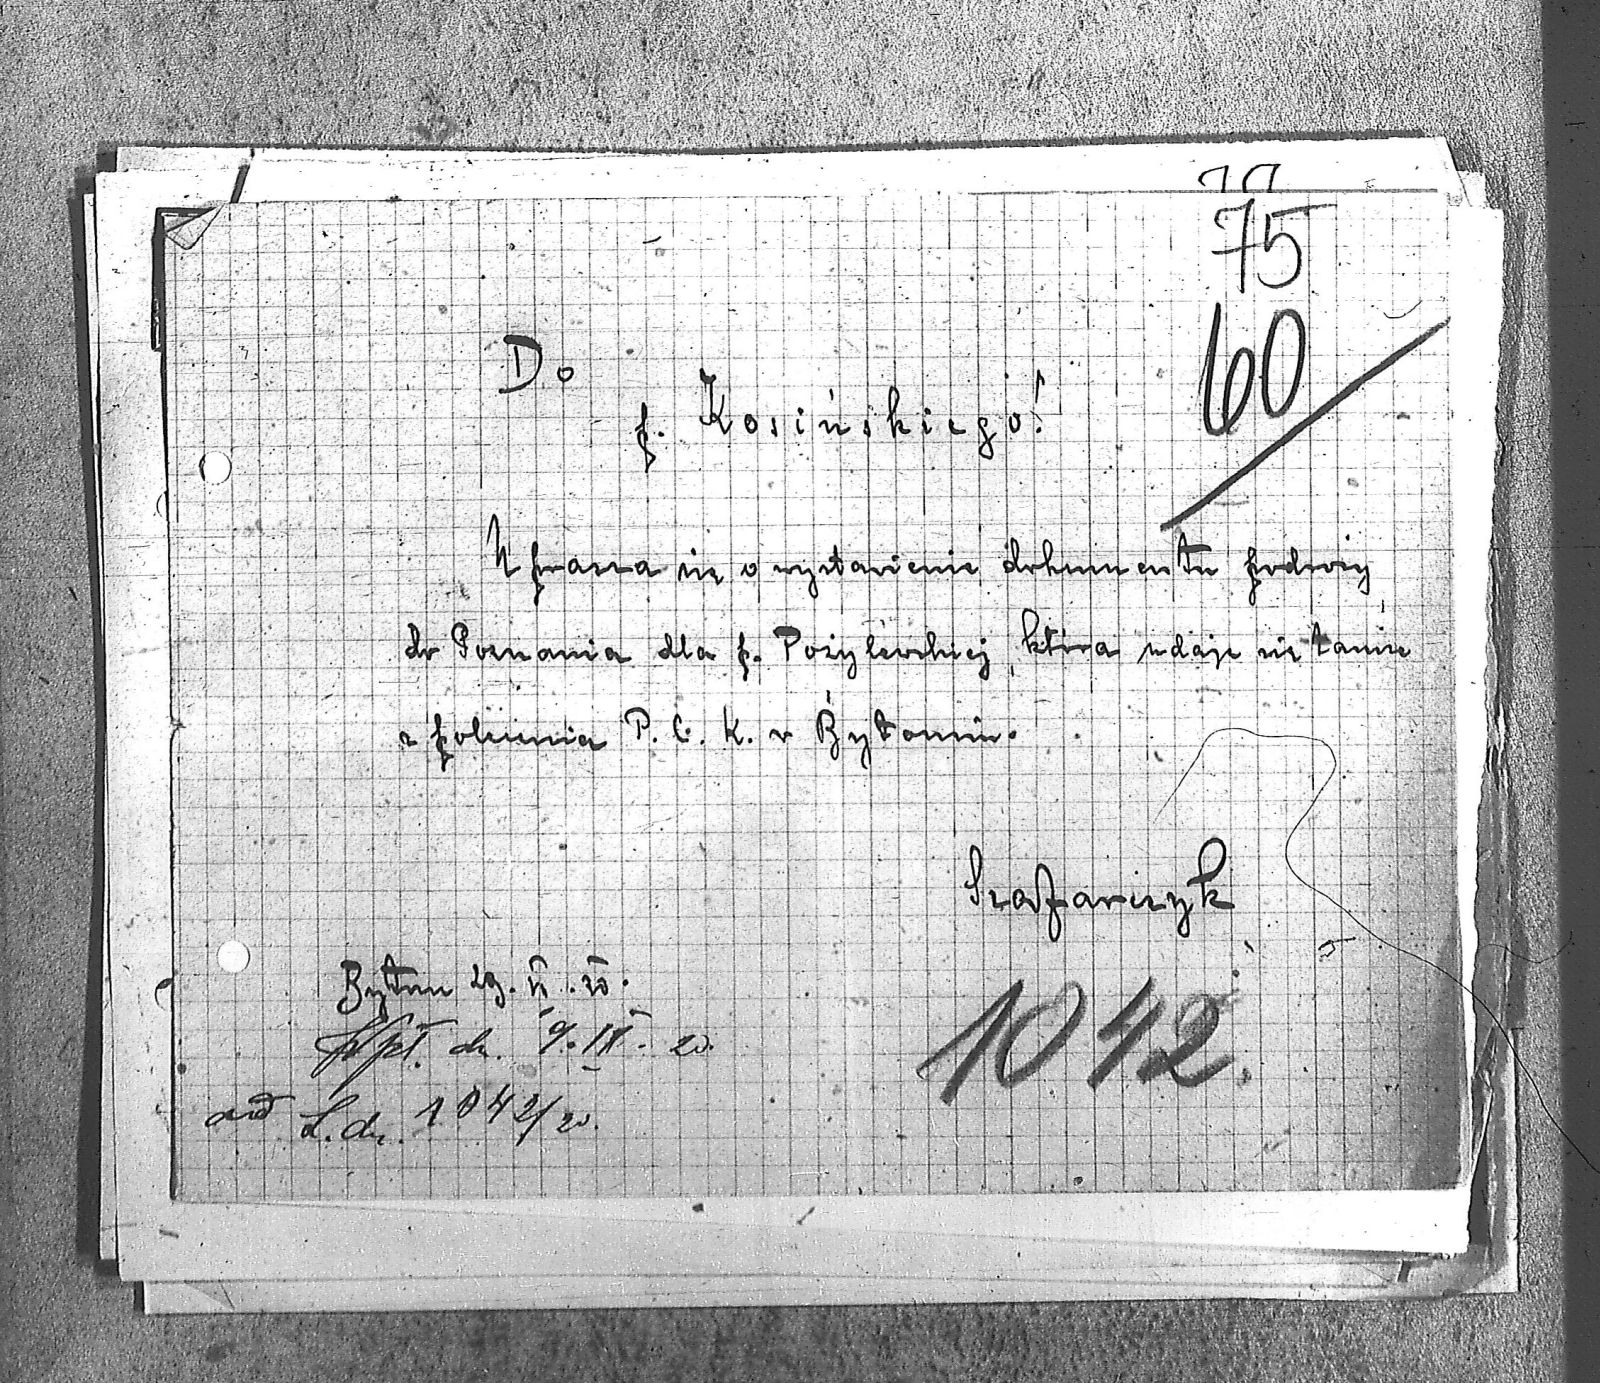 77
75
60
Do
p. Kosińskiego!
Uprasza się o wystawienie dokumentu podróży
do Poznania dla p. Pożylewskiej, która udaje się tamże
z polecenia P. C. K. w Bytomiu.
Szafarczyk
Bytom 29. 20.
1042.
dn. 9. IX. 20.
L.dz. 1042/20.